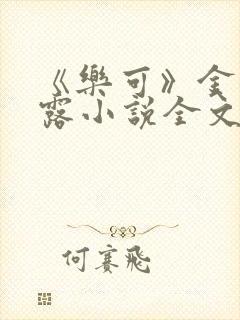 《樂可》金
露小說全文
何賽飛